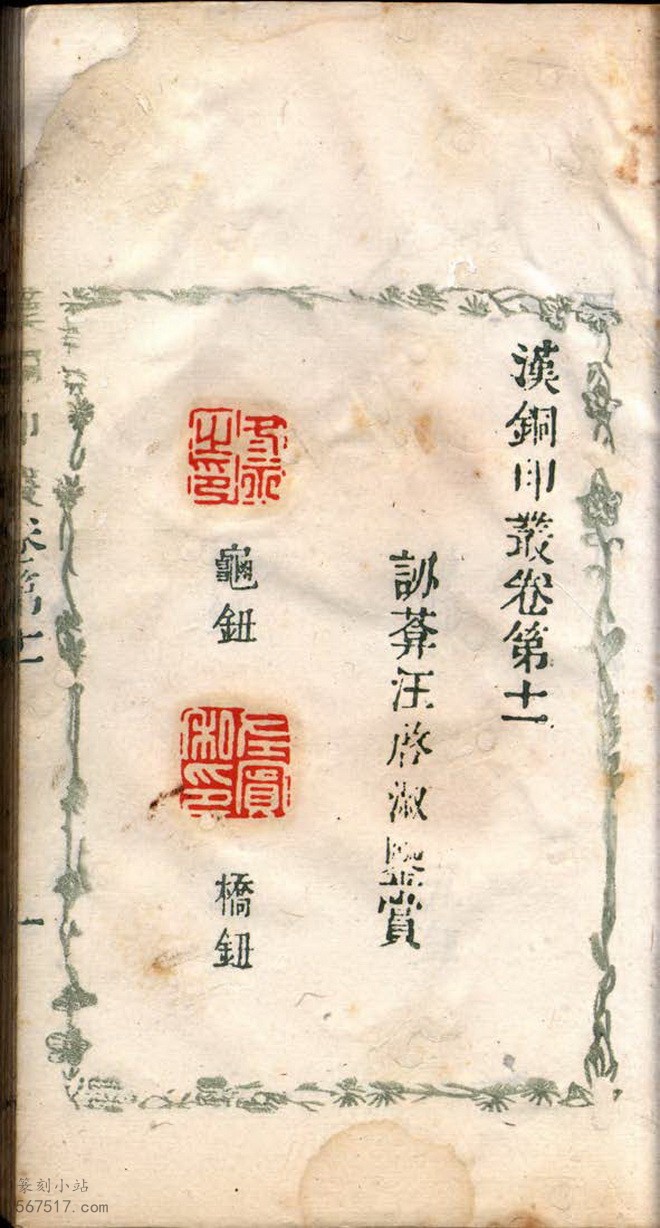 漢銅印叢卷第十一
訒葊汪啓淑鑒賞
龜鈕
橋鈕
漢銅印叢卷第十一
一
篆刻小站
567517.com